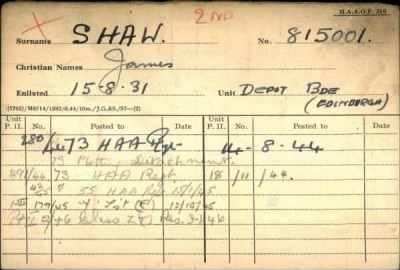 H.A.A.O.F. 210
X 2ND
Surname SHAW. No. 815001.
Christian Names James
Enlisted 15-8-31 Unit DEPOT BDE
(EDINBURGH)
Unit P. II. No. Posted to Date Unit P. II. No. Posted to Date
280/44 73 HAA Rgt 14-8-44
73 Detachment.
391/44 73 HAA Regt. 18/11/44.
55 HAA Rgt 15/1/45
179/45 Y List 12/10/45
2/46 Class Z Res. 3-1-46